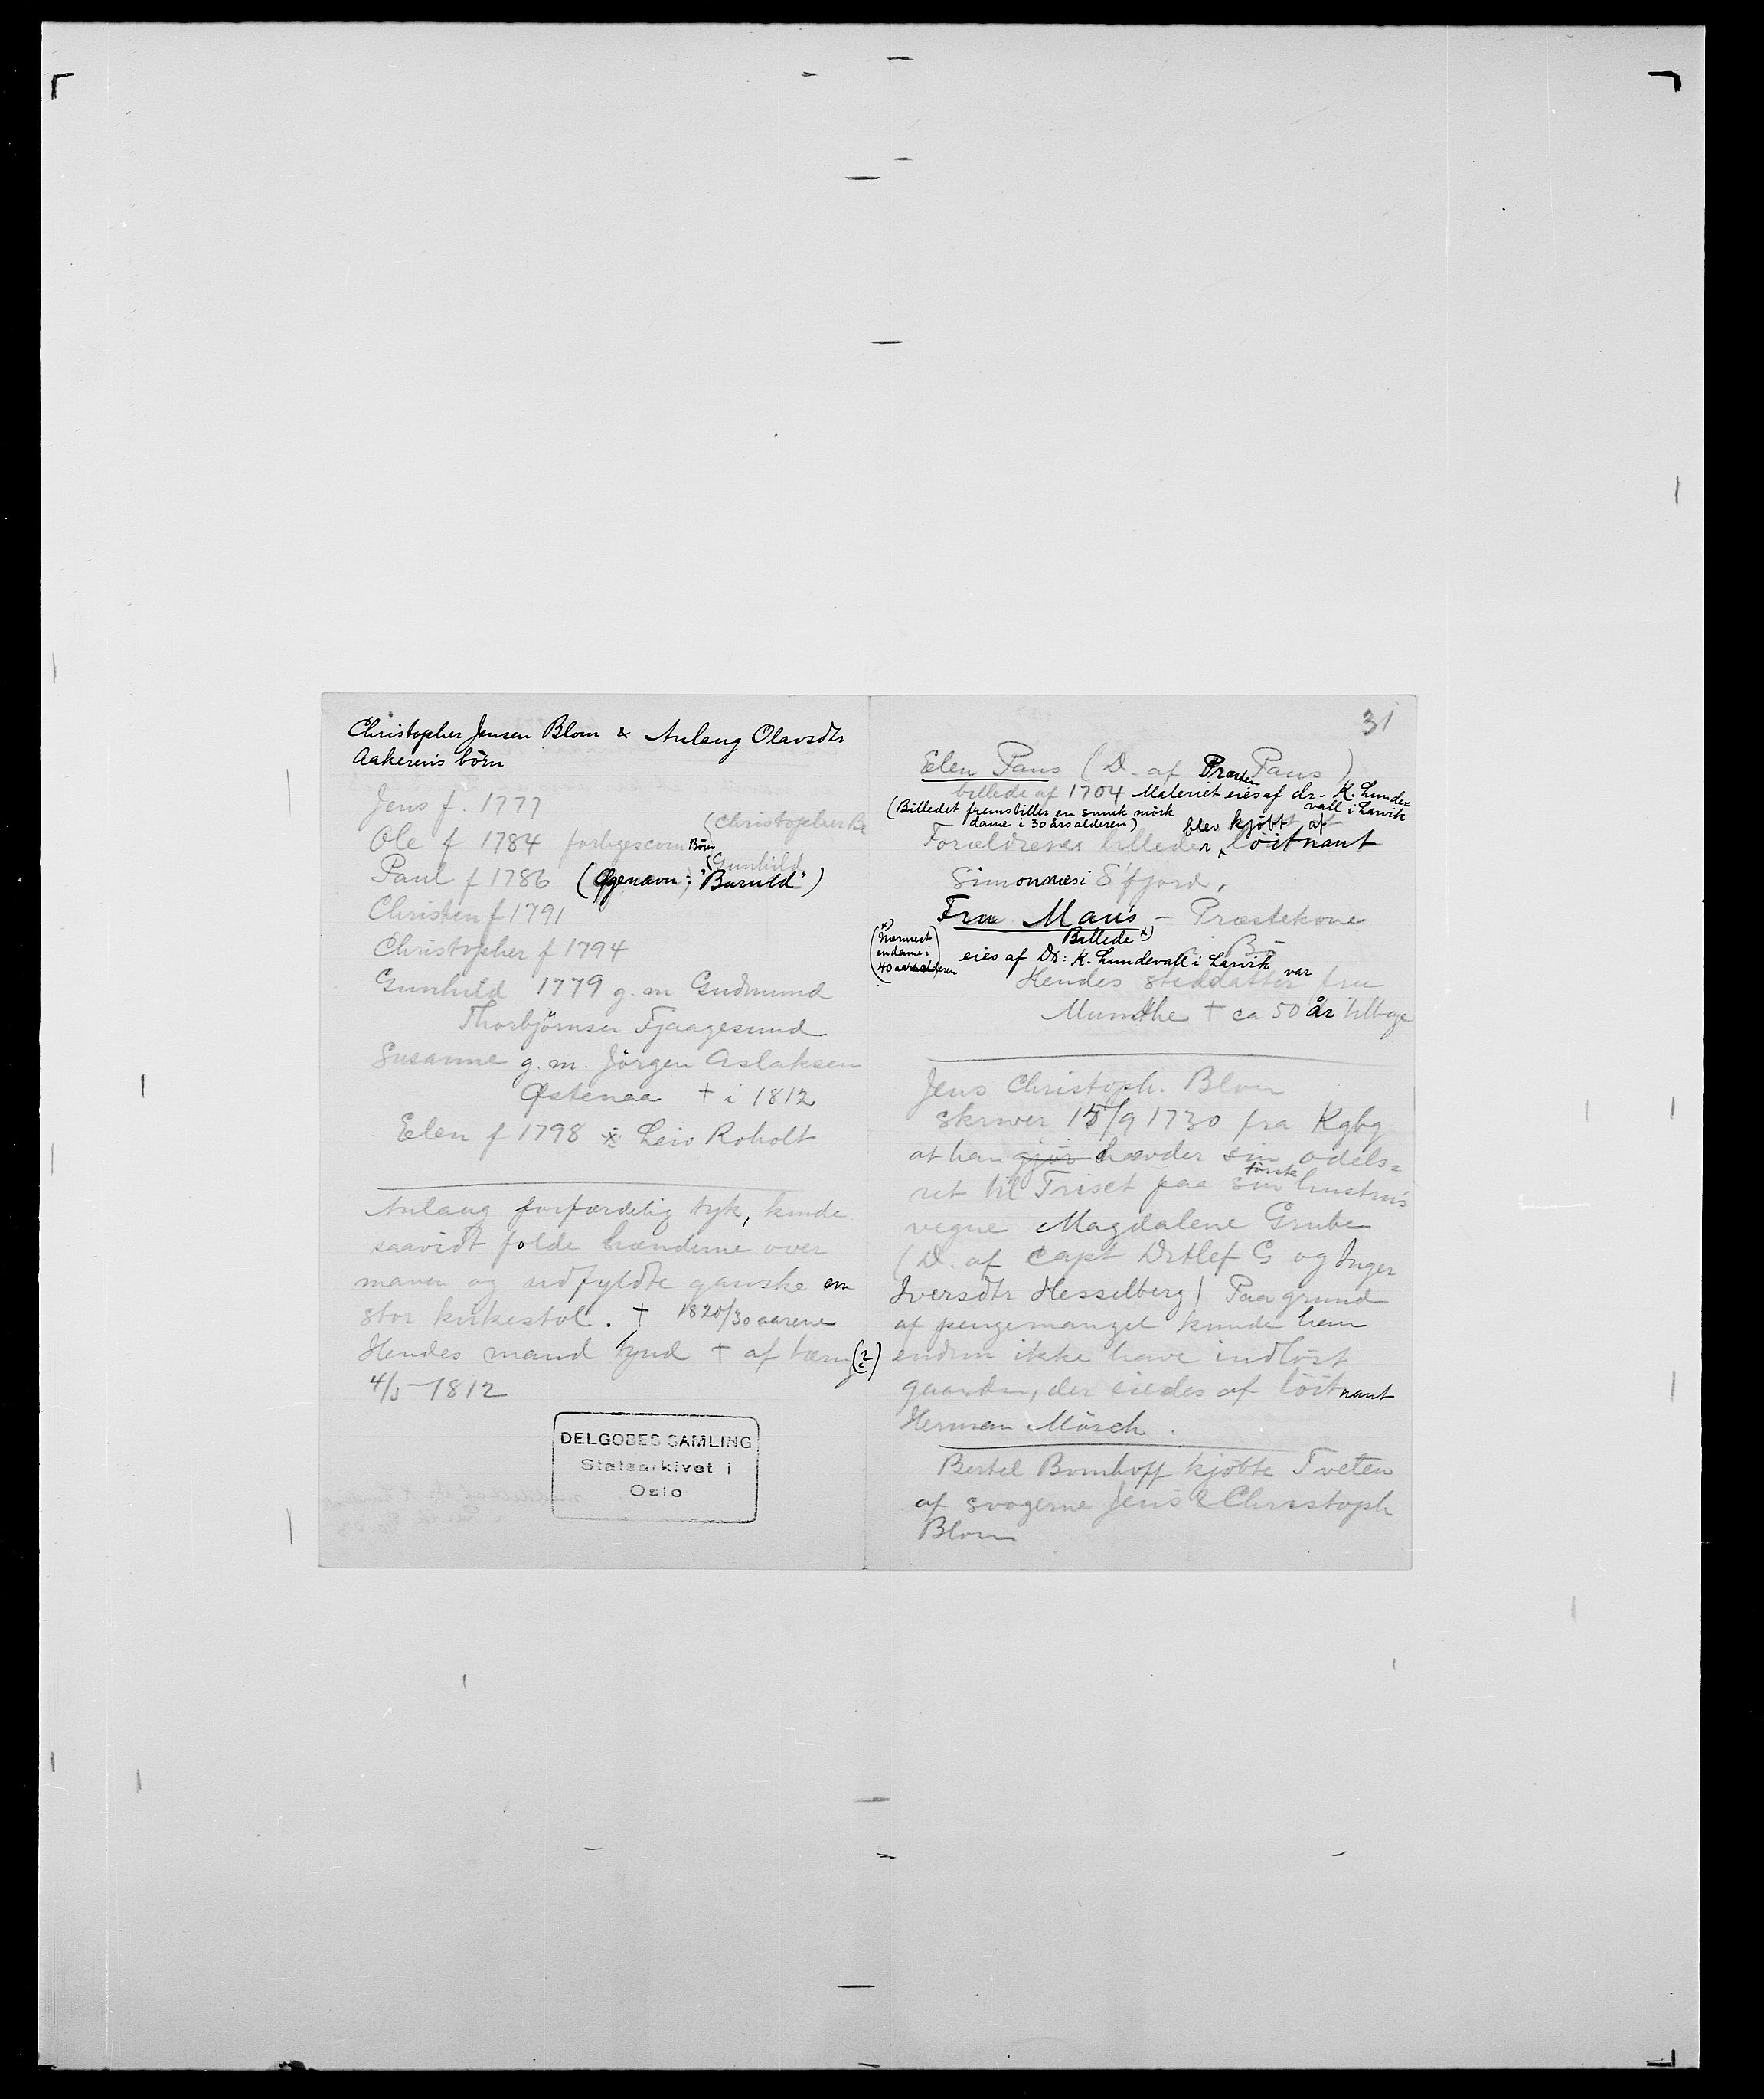 Christopher Jensen Blom & Anlaug Olavsdtr
Aakerens börn
Jens f. 1777
Ole f 1784 Börn {Christopher
{Gunhild
Paul f 1786 (Øgenavn: "Baruld")
Christen f 1791
Christopher f 1794
Gunhild 1779 g. m Gudmund
Thorbjörnsen Fjaagesund
Susanne g. m. Jörgen Aslaksen
Østenaa † i 1812
Elen f 1798 Leiv Roholt
Anlaug forfærdelig tyk, kunde
saavidt folde hænderne over
maven og udfyldte ganske en
stor kirkestol. † 1820/30 aarene
Hendes mand tynd † af tæring (?)
4/5 1812
DELGOBES SAMLING
Statsarkivet i
Oslo
31
Elen Paus (D. af Præsten Paus)
billede af 1704 Maleriet eies af dr. K. Lunde=
vall i Larvik
(Billedet fremstiller en smuk mörk
dame i 30 års alderen)
Forældrenes billeder blev kjöbt af löitnant
Simonnæs i S'fjord,
Fru Maus - Præstekone
Billede x)
Bö
x) (Nærmest
en dame i
40 aarsalderen
eies af Dr: K. Lundevall i Larvik
Hendes steddatter var fru
Munthe † ca 50 år tilbage
Jens Christoph. Blom
skriver 15/9 1730 fra Kgbg
at han gjör hævder sin odels=
ret til Triset paa sin första hustrus
vegne Magdalene Grube
(D. af Capt Ditlef G og Inger
Iversdtr Hesselberg) Paa grund
af pengemangel kunde han
endnu ikke have indlöst
gaarden, der eiedes af löitnant
Herman Mörch.
Bertel Bomhoff kjöbte Tveten
af svogerne Jens & Christoph
Blom